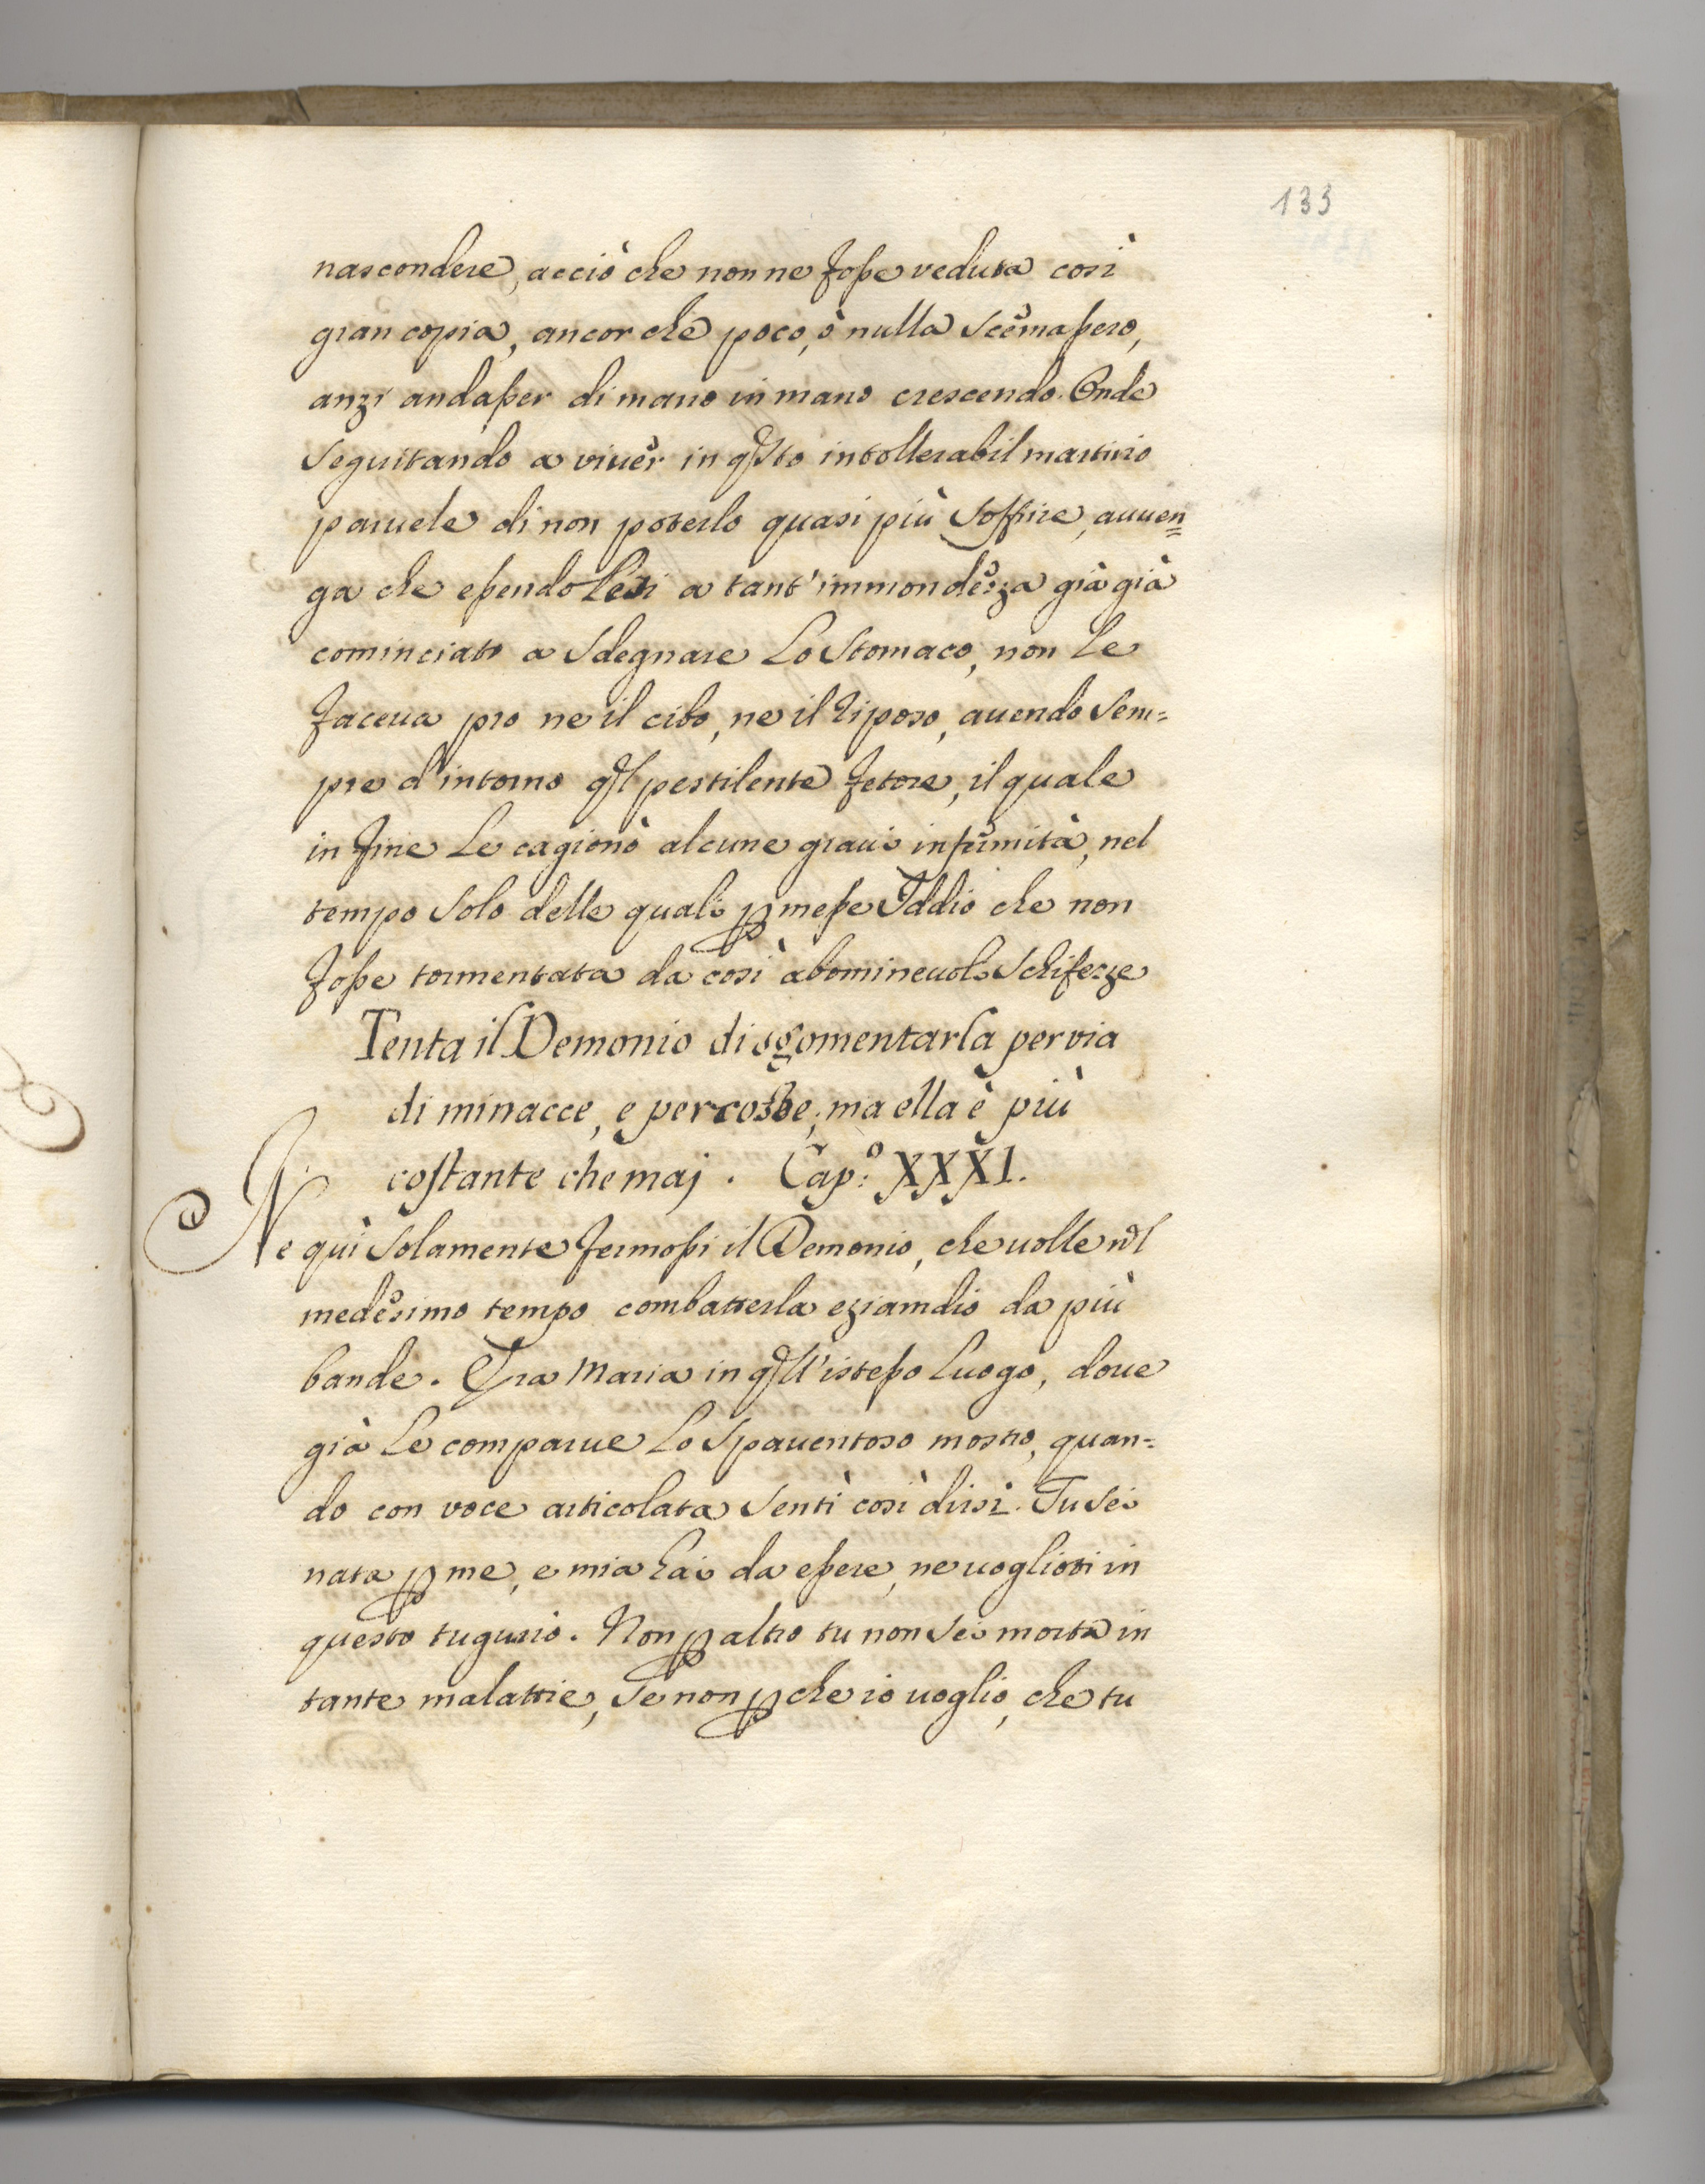 133
nascondere, acciò che non ne fosse veduta così
gran copia, ancor che poco, ò nulla scemassero,
anzi andasser di mano in mano crescendo. Onde
seguitando a viuer in qsto intollerabil martirio
paruele di non poterlo quasi più soffrire, auuen=
ga che essendolesi a tant' immondezza già già
cominciato a sdegnare lo stomaco, non le
faceua pro ne il cibo, ne il riposo, auendo sem=
pre d'intorno ql pestilente fetore, il quale
in fine le cagionò alcune graui infirmità, nel
tempo solo delle quali pmesse Iddio che non
fosse tormentata da così abomineuoli schifezze
Tenta il Demonio di sgomentarla per via
di minacce, e percosse, ma ella è più
costante che maj. Cap.º XXXI.
Ne quì solamente fermossi il Demonio, che uolle nel
medesimo tempo combatterla eziamdio da più
bande. Era Maria in qll'istesso luogo, doue
già le comparue lo spauentoso mostro, quan=
do con voce articolata sentì così dirsi. Tu sei
nata p me, e mia hai da essere, ne uoglioti in
questo tugurio. Non p altro tu non sei morta in
tante malattie, se non pche io uoglio, che tu